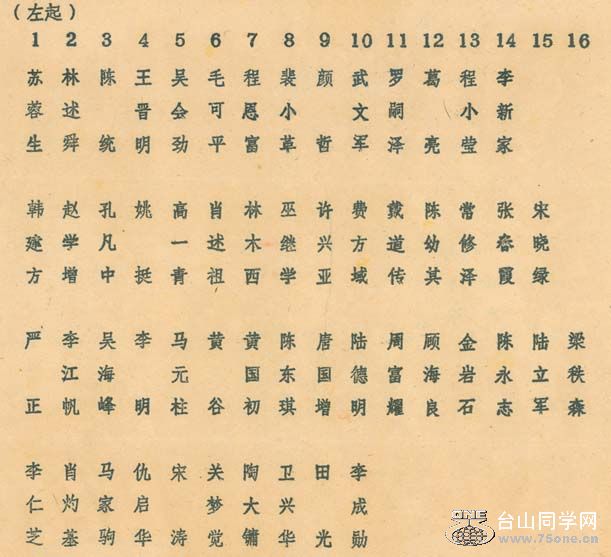 (左起)
1 2 3 4 5 6 7 8 9 10 11 12 13 14 15 16
苏蓉生 林述舜 陈统 王晋明 吴会劲 毛可平 程恩富 裴小革 颜哲 武文军 罗嗣泽 葛亮 程小莹 李新家
韩建方 赵学增 孔凡中 姚挺 高一青 肖述祖 林木西 巫继学 许兴亚 费方域 戴道传 陈幼其 常修泽 张春霞 宋晓绿
严正 李江帆 吴海峰 李明 马元柱 黄谷 黄国初 陈东琪 唐国增 陆德明 周富耀 顾海良 金岩石 陈永志 陆立军 梁秩森
李仁芝 肖灼基 马家驹 仇启华 宋涛 关梦觉 陶大镛 卫兴华 田光 李成勋
ONE
台山同学网
www.75one.cn